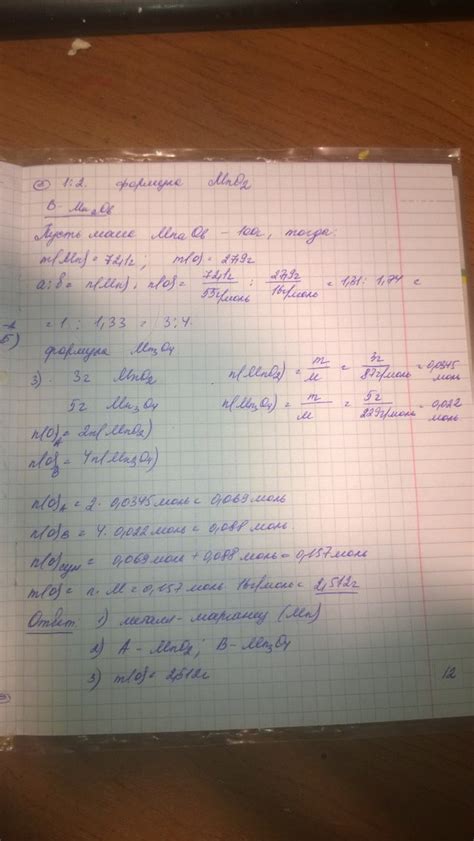 = 1:2. формула MnO2
B - MnaOb
Пусть масса MnaOb - 100г, тогда:
m(Mn) = 72,1г; m(O) = 27,9г
a:b = n(Mn) : n(O) = 72,1г/55г/моль : 27,9г/16г/моль = 1,31 : 1,74 =
= 1 : 1,33 = 3:4.
формула Mn3O4
3) 3г MnO2 n(MnO2) = m/M = 3г/87г/моль = 0,0345 моль
5г Mn3O4 n(Mn3O4) = m/M = 5г/229г/моль = 0,022 моль
n(O)A = 2n(MnO2)
n(O)B = 4n(Mn3O4)
n(O)A = 2 · 0,0345 моль = 0,069 моль
n(O)B = 4 · 0,022 моль = 0,088 моль.
n(O)сум = 0,069 моль + 0,088 моль = 0,157 моль
m(O) = n · M = 0,157 моль · 16г/моль = 2,512г
Ответ: 1) металл - марганец (Mn)
2) A - MnO2; B - Mn3O4
3) m(O) = 2,512г
12